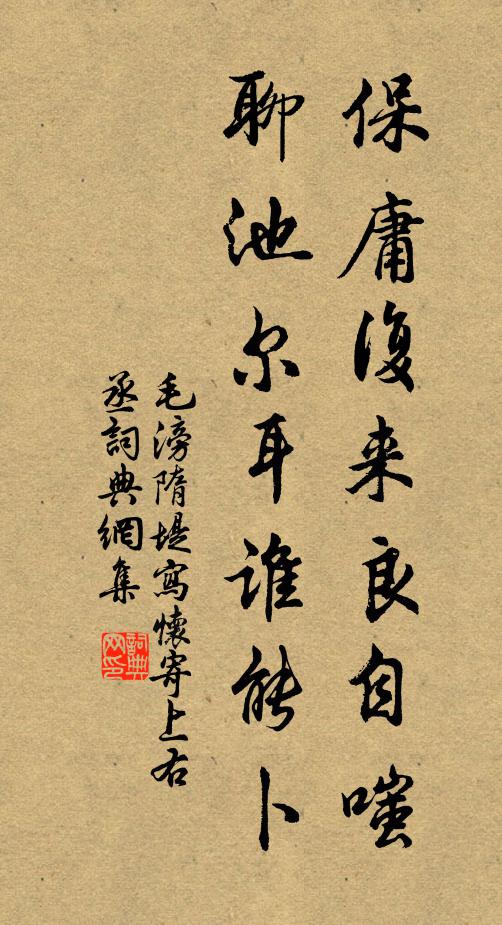 保庸復来良自嗤
聊池尔耳谁能卜
毛滂隋堤寫懷寄上右
丞詞典網集
詞典网印